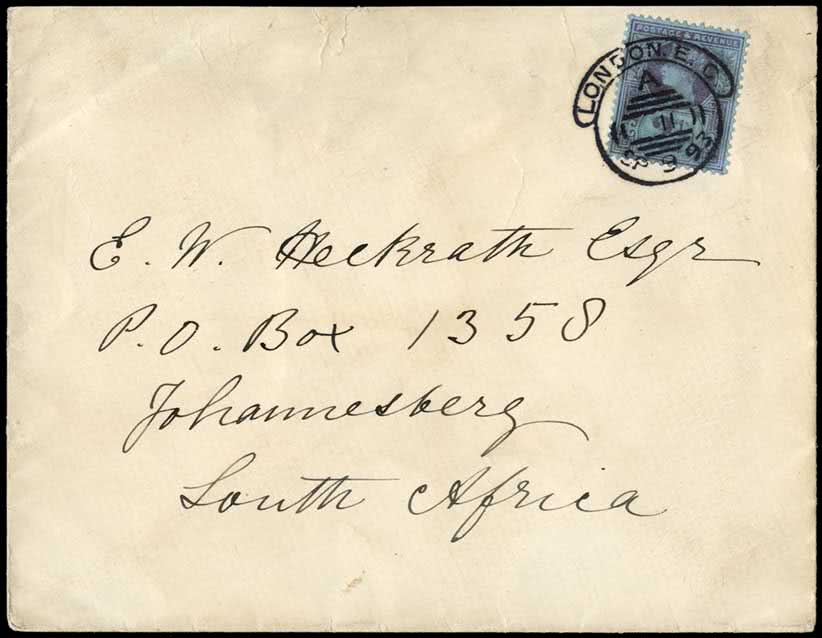 POSTAGE & REVENUE
LONDON. E. C
A
11 11
SP 9
93
E. W. Heckrath Esqr
P. O. Box 1358
Johannesberg
South Africa